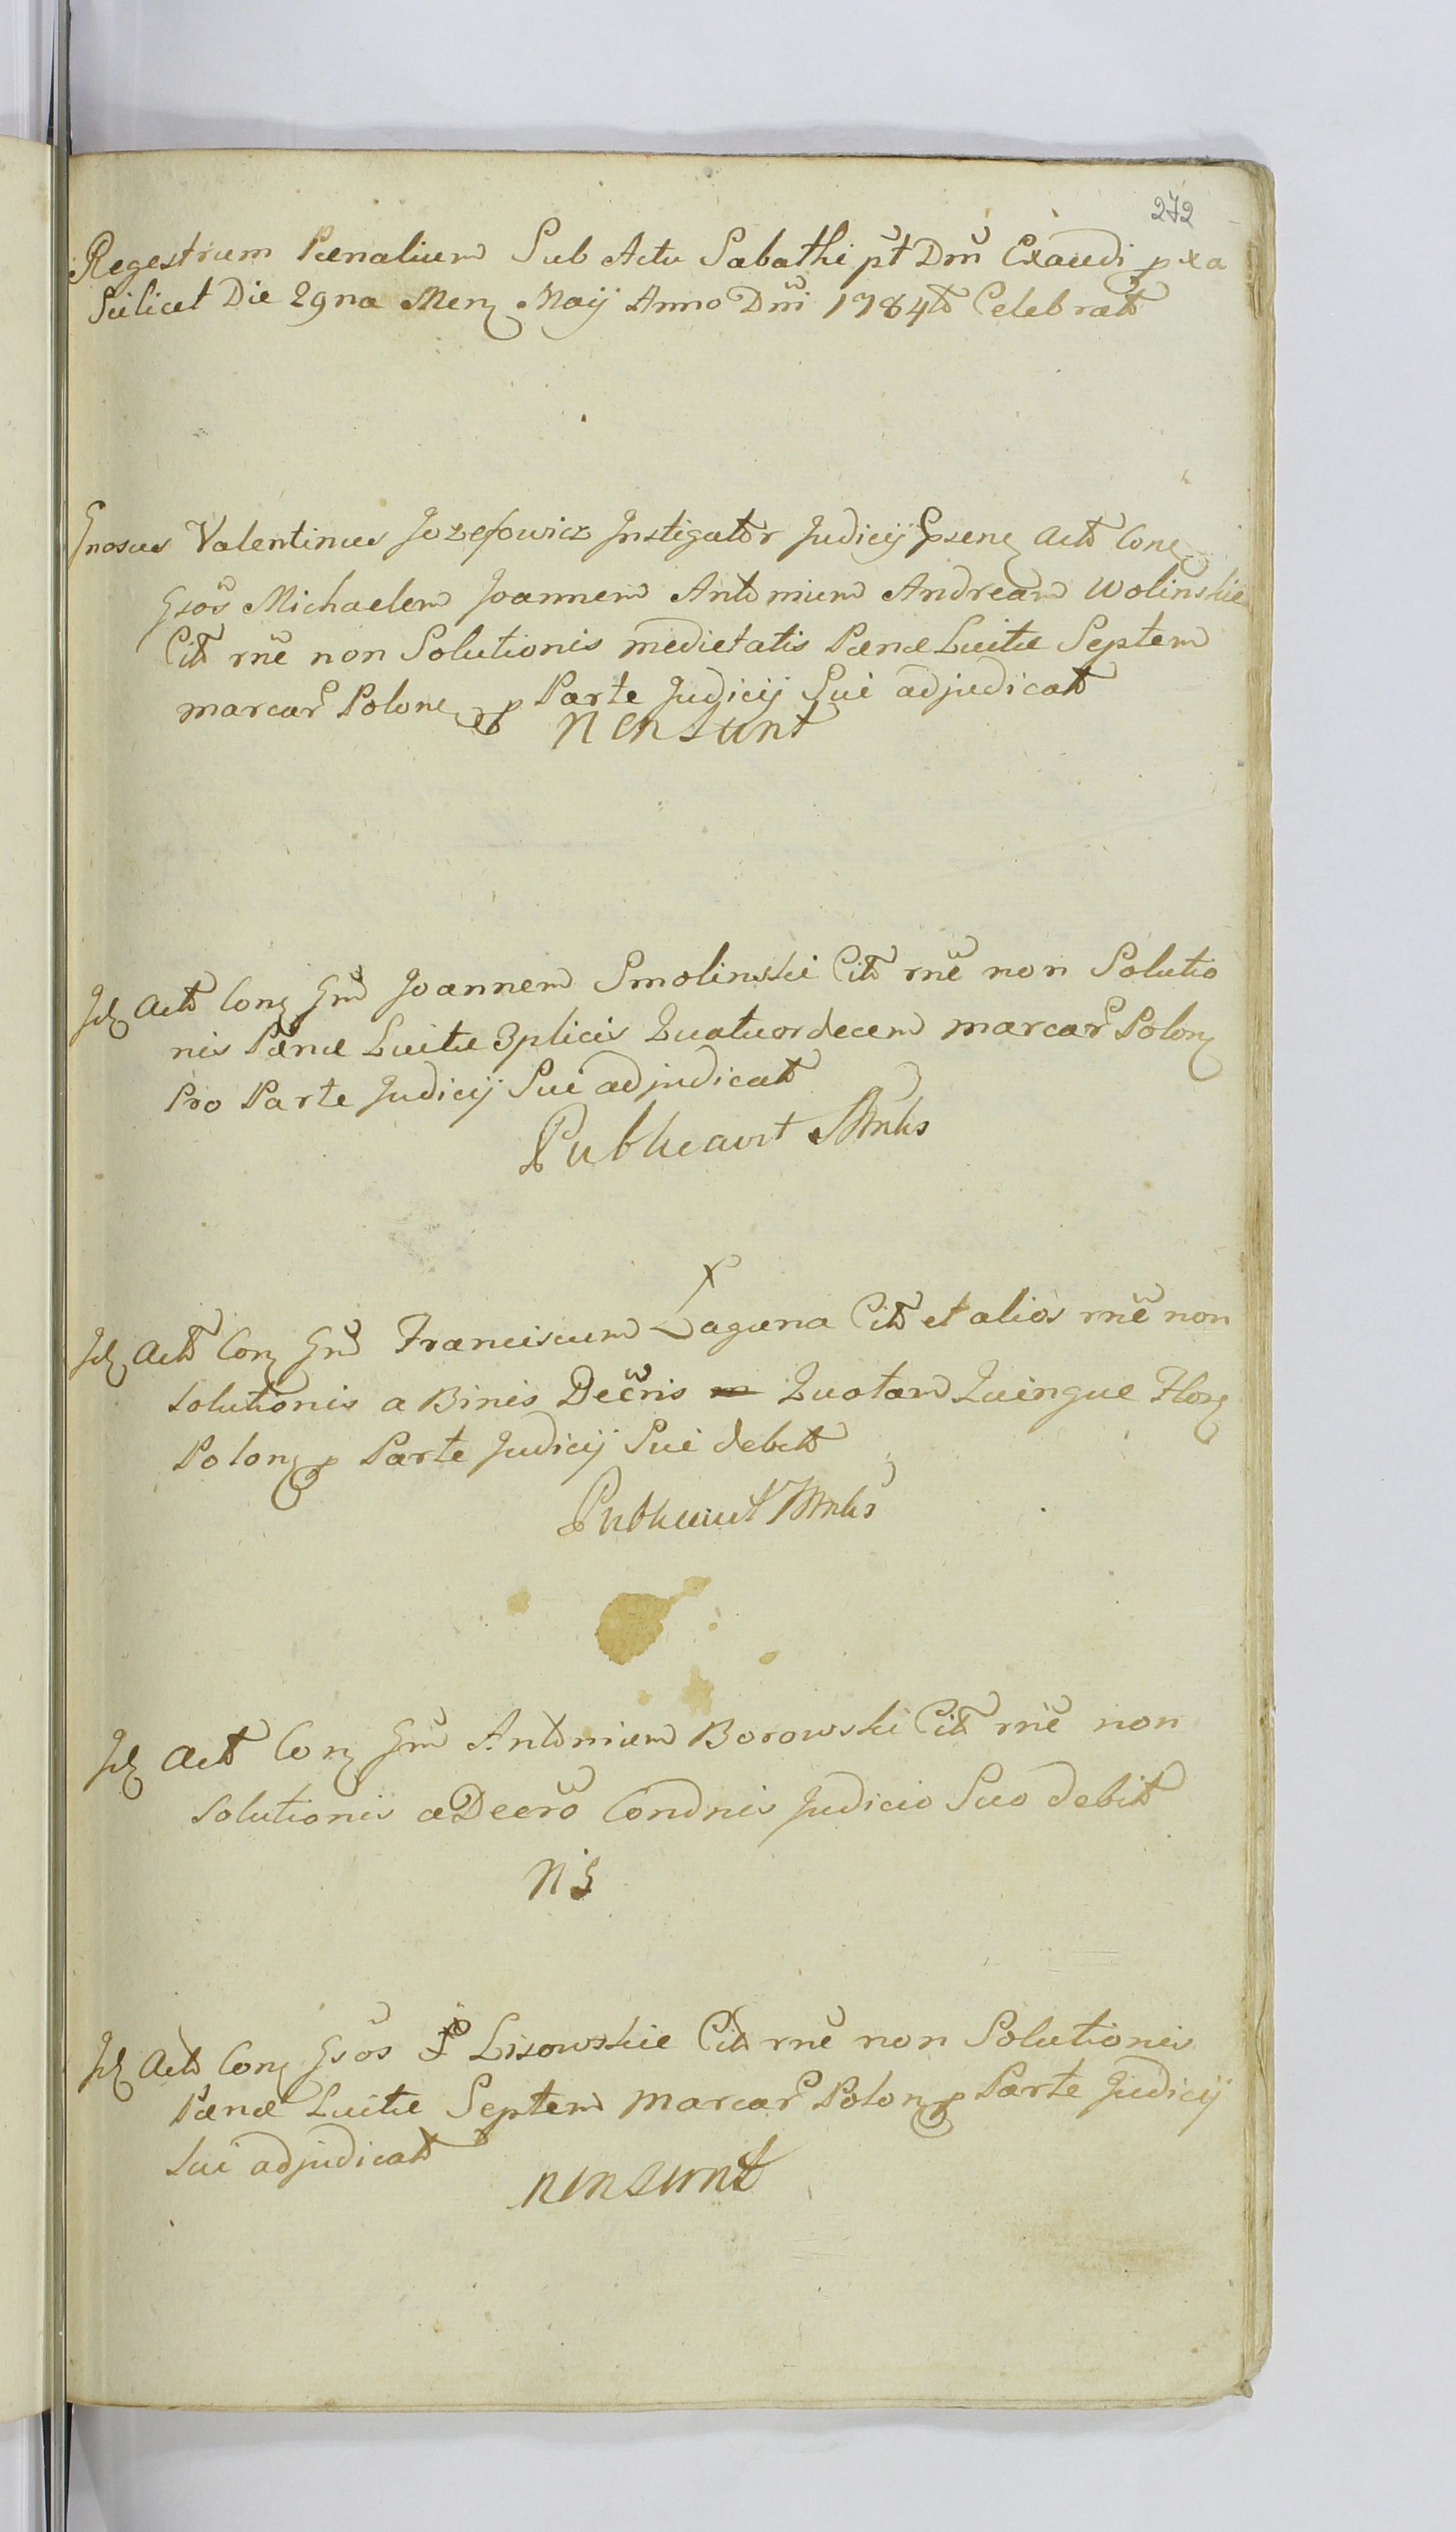 272
Regestrum Pænalium Sub Actu Sabathi pt Dm Exaudi pxa
Scilicet Die 29na Men Maij Anno Dni 1784to Celebrat
Gnosus Valentinus Jozefowicz Instigator Judicij Psenę Act Conę
Gsos Michaelem Joannem Antonium Andream Wolinskie
Cit rne non Solutionis medietatis Pænæ Luitæ Septem
marcar Polone p Parte Judicij Sui adjudicat
Non Sunt
Id Act Con Gm Joannem Smolinski Cit rne non Solutio
nis Pænæ Luitæ 3plicis Quatuordecem marcar Polon
Pro Parte Judicij Sui adjudicat
Publicavit
Id Act Con Gm Franciscum Łaguna Cit et alios rne non
solutionis a Binis Decris Quotam Quinque Flor
Polon p Parte Judicij Sui debit
Id Act Con Gm Antonium Borowski Cit rne non
solutionis a Decro Condnis Judicio Suo debit
NS
Id Act Con Gsos Lisowskie Cit rne non Solutionis
Pænæ Luitæ Septem marcar Polon p Parte Judicij
sui adjudicat
non sunt